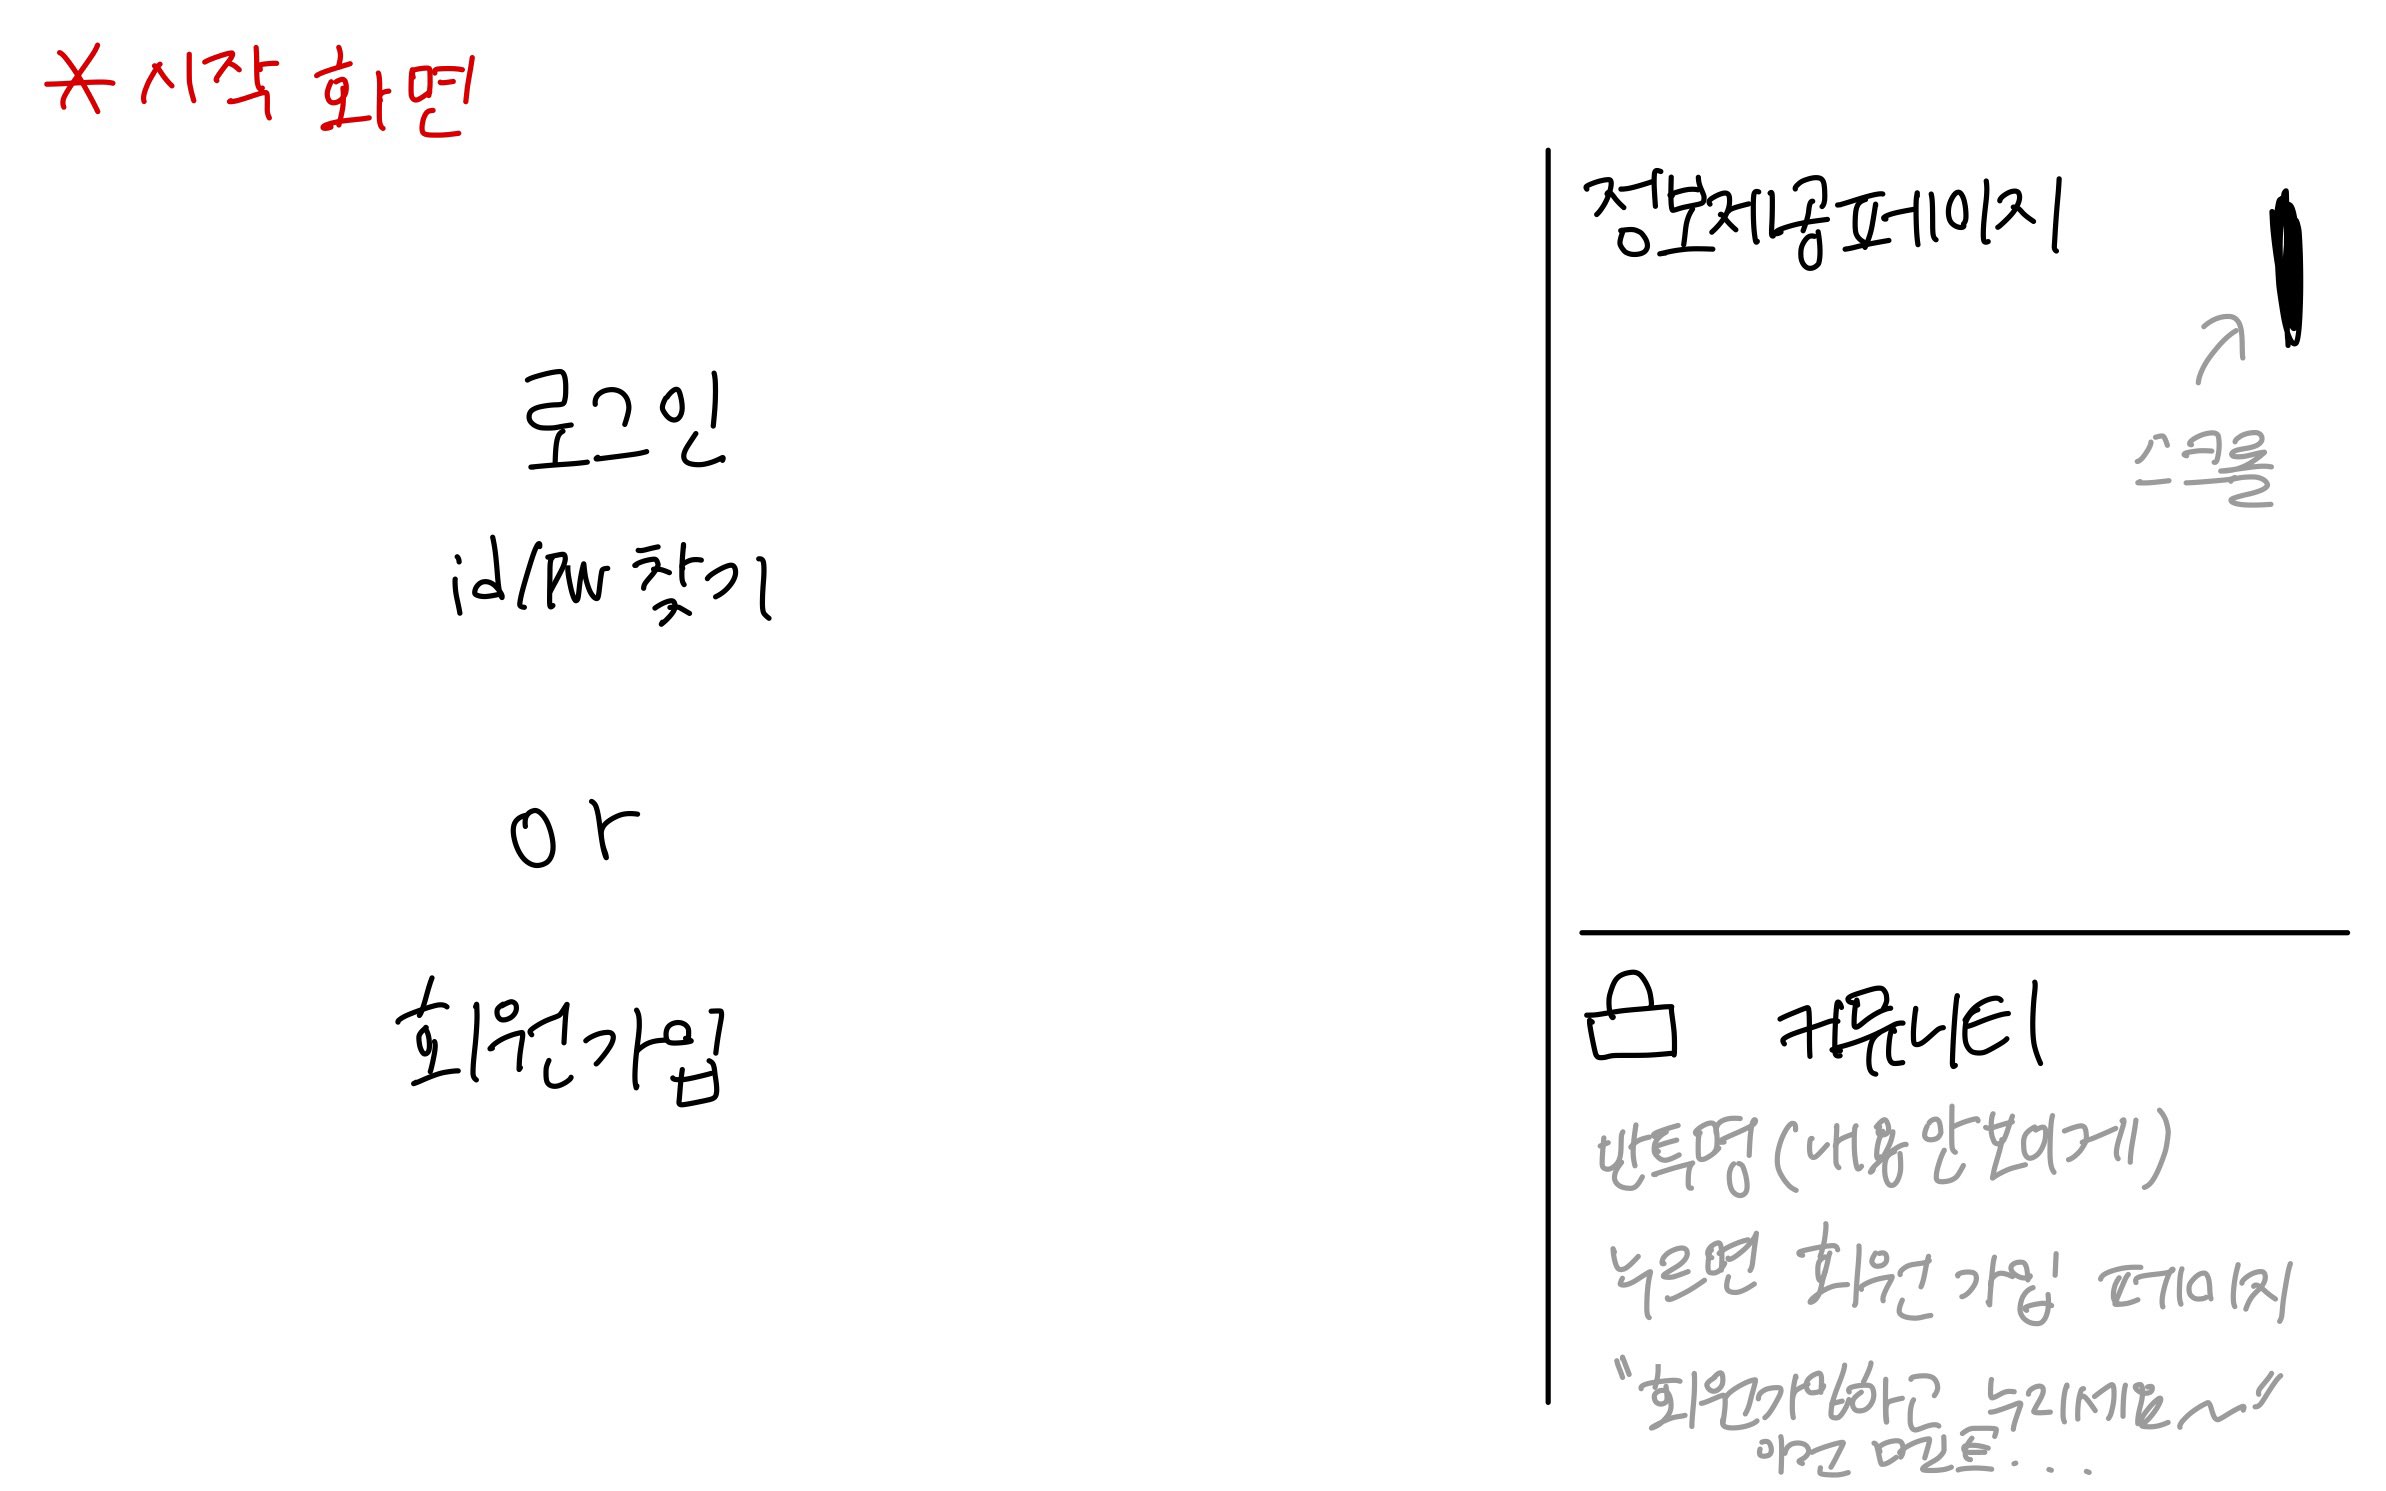 * 시작 화면
로그인
id/PW 찾기
or
회원가입
정보제공페이지
스크롤
커뮤니티
반투명(내용 안보이게)
누르면 회원가입 페이지
"회원가입하고 누리세요~"
이런 멘트...